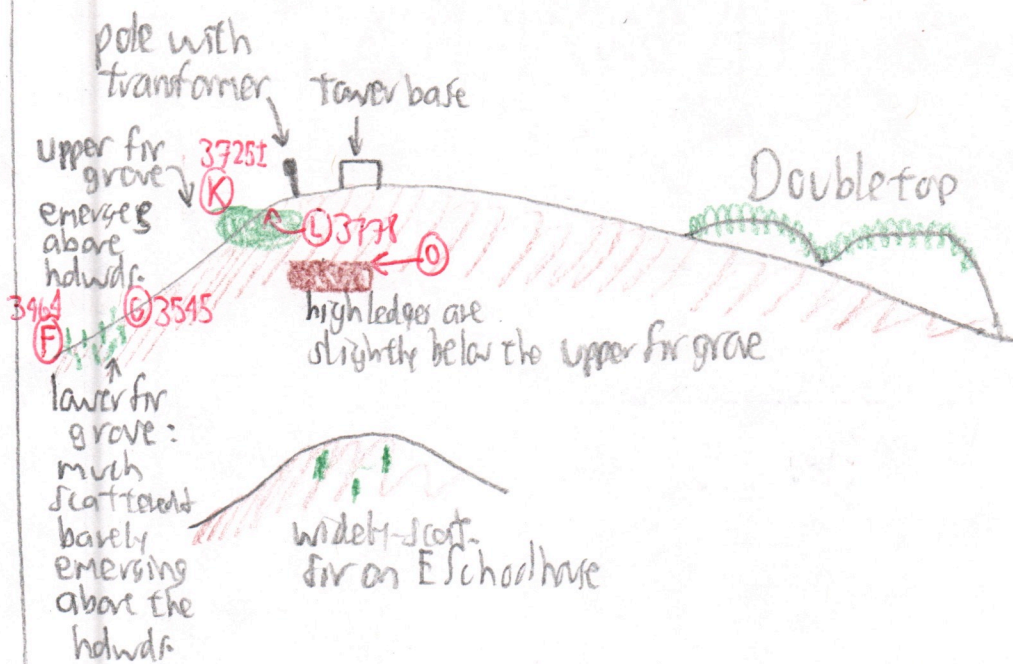 pole with
transformer
tower base
upper fir
grove
emerges
above
hdwds.
3725±
K
Doubletop
L 3778
O
high ledges are
slightly below the upper fir grove
3464
F
G 3545
lower fir
grove:
much
scattered
barely
emerging
above the
hdwds.
widely-scat.
fir on E Schoolhouse